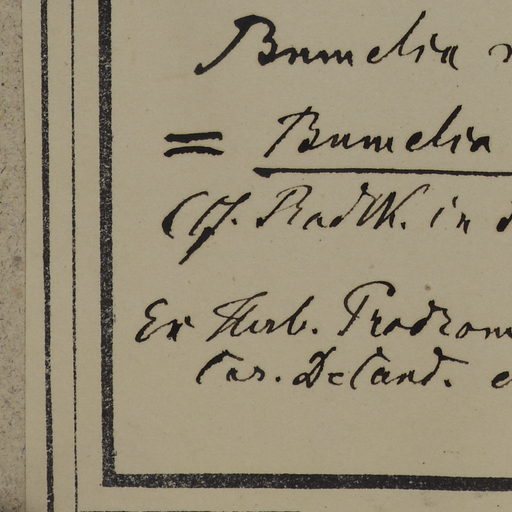 Bumelia
= Bumelia
(Cf. Radlk. in
Ex Herb. Prodrom
Cas. DeCand.